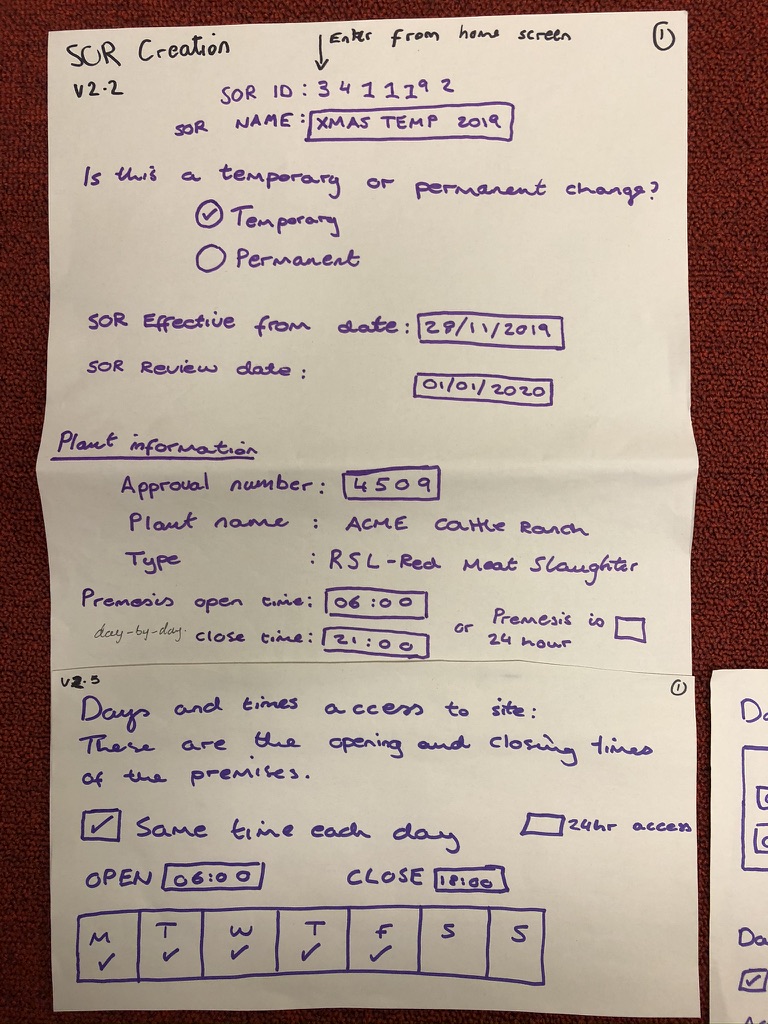 SOR Creation
↓ Enter from home screen
①
V2.2
SOR ID: 3411192
SOR NAME: XMAS TEMP 2019
Is this a temporary or permanent change?
Temporary
Permanent
SOR Effective from date: 28/11/2019
SOR Review date:
01/01/2020
Plant information
Approval number: 4509
Plant name : ACME Cattle Ranch
Type : RSL-Red Meat Slaughter
Premesis open time: 06:00
or Premesis is 24 hour
day-by-day. close time: 21:00
V2.5
①
Days and times access to site:
These are the opening and closing times
of the premises.
Same time each day
24hr access
OPEN 06:00 CLOSE 18:00
M T W T F S S
Da
Da